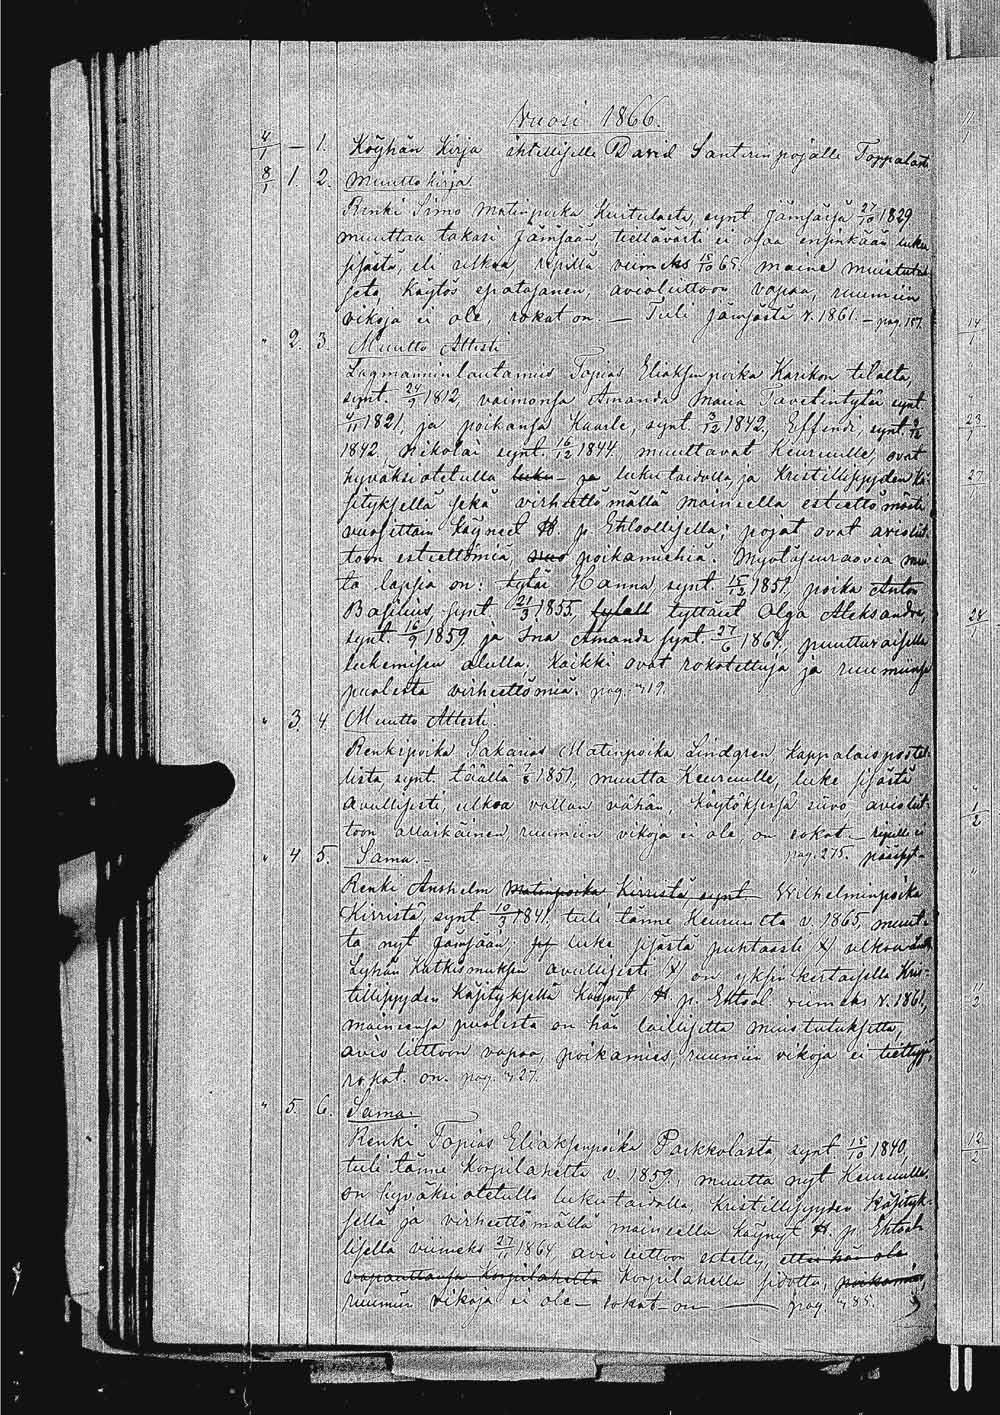 Vuosi 1866.
4/1 — 1. Köyhän Kirja ihtelliselle David Santerin pojalle Toppalasta
8/1 1. 2. Muutto kirja
Renki Simo Matinpoika Huitulasta, synt. Jämsässä 27/10 1829
muuttaa takasi Jämsään, tiettävästi ei osaa ensinkään lukea
sisästä, eli ulkoa, ripillä viimeks 15/10 65. maine muistutuk-
seta, käytös epatasanen, avioliittoon vapaa, ruumiin
vikoja ei ole, rokat on. — Tuli Jämsästä v. 1861. — pag. 157.
" 2. 3. Muutto Attesti
Lagmannin lautamies Topias Eliaksenpoika Karikon tilalta,
synt. 24/9 1812, vaimonsa Amanda Maria Tavetintytär synt.
4/11 1821, ja poikansa Kaarle, synt. 3/12 1842, Effendi, synt.
1842, Nikolai synt. 16/12 1844, muuttavat Keuruulle, ovat
hyväksi otetulla luku- ja lukutaidolla ja Kristillisyyden Kä-
sityksellä sekä virheettömällä maineella esteettömästi
vuosittain käyneet H. p. Ehtoollisella; pojat ovat avioliit-
toon esteettömiä, poikamiehiä. Myötäseuraavia muu-
ta lapsia on: tytär Hanna, synt. 15/12 1851, poika Anton
Basilius, synt 21/3 1855, tyttäret Olga Aleksandra,
synt. 16/9 1859 ja Ina Amanda synt. 27/6 1864, puutturaisella
lukemisen alulla; kaikki ovat rokotettuja ja ruumiinsa
puolesta virheettömiä. pag. 419.
" 3. 4. Muutto Attesti.
Renkipoika Sakarias Matinpoika Lindgren, kappalaispostel-
lista, synt. täällä 1851, muutta Keuruulle, luke sisästä
avullisesti, ulkoa vallan vähän, käytöksessä siivo, avioliit-
toon allaikäinen, ruumiin vikoja ei ole, on rokat. — ripille ei
pag. 275. päässyt.
" 4 5. Sama. —
Renki Anshelm Matinpoika Kirristä synt Wilhelminpoika
Kirristä, synt 10/2 1841, tuli tänne Keuruulta v. 1865, muut-
ta nyt Jämsään; luke sisästä puhtaasti ulkoa
Lyhän Katkismuksen avullisesti on yksinkertaisella Kris-
tillisyyden Käsityksellä käynyt H. p. Ehtool. viimeks v. 1861,
maineensa puolesta on hän laillisetta muistutuksetta,
avioliittoon vapaa, poikamies, ruumiin vikoja ei tiettyjä,
rokot. on. pag. 427.
" 5. 6. Sama.
Renki Topias Eliaksenpoika Paikkolasta, synt 15/10 1840,
tuli tänne Korpilahelta v. 1859, muutta nyt Keuruulle.
on hyväksi otetulla lukutaidolla, Kristillisyyden Käsityk-
sellä ja virheettömällä maineella käynyt H. p. Ehtool-
lisella viimeks 27/11 1864, avioliittoon ettei hän ole
vapauttansa Korpilahella Korpilahella sidottu, poikamies,
ruumiin vikoja ei ole — rokat — on — pag. 485.